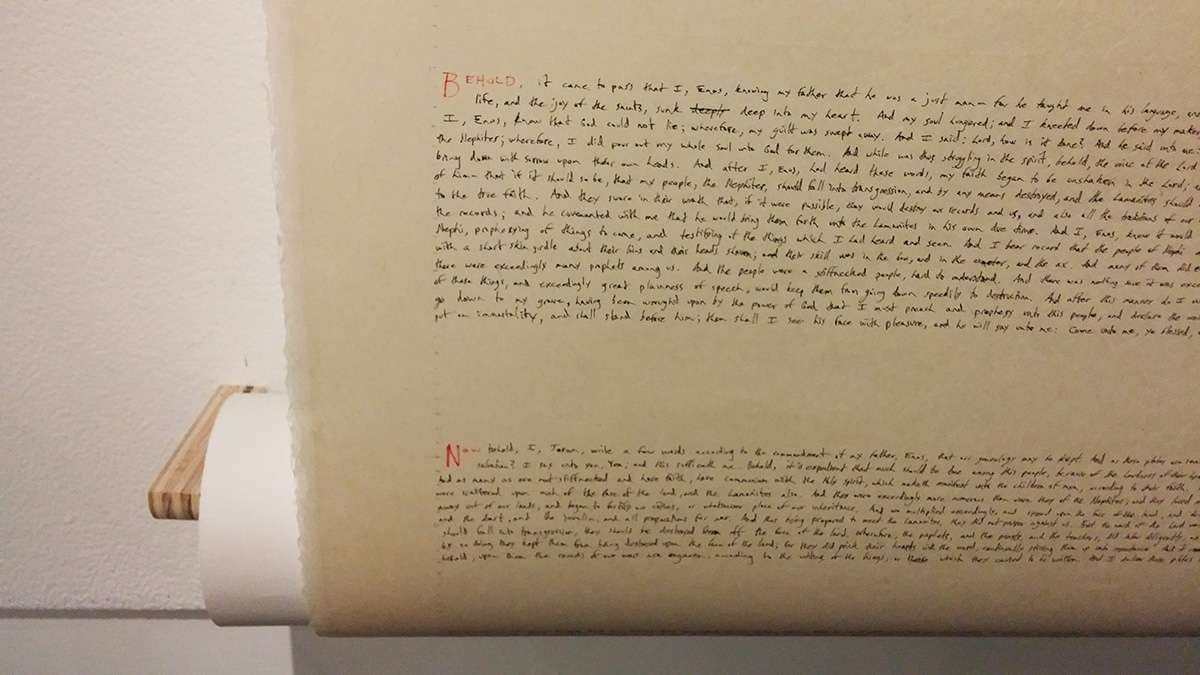 BEHOLD, it came to pass that I, Enos, knowing my father that he was a just man— for he taught me in his language, and
life, and the joy of the saints, sunk deeply deep into my heart. And my soul hungered; and I kneeled down before my maker
I, Enos, knew that God could not lie; wherefore, my guilt was swept away. And I said: Lord, how is it done? And he said unto me:
the Nephites; wherefore, I did pour out my whole soul unto God for them. And while was thus struggling in the spirit, behold, the voice of the Lord
bring down with sorrow upon their own heads. And after I, Enos, had heard these words, my faith began to be unshaken in the Lord;
of him— that if it should so be, that my people, the Nephites, should fall into transgression, and by any means destroyed, and the Lamanites should
to the true faith. And they swore in their wrath that, if it were possible, they would destroy our records and us, and also all the traditions of our
the records; and he covenanted with me that he would bring them forth unto the Lamanites in his own due time. And I, Enos, knew it would
Nephi, prophesying of things to come, and testifying of the things which I had heard and seen. And I bear record that the people of Nephi
with a short skin girdle about their loins and their heads shaven; and their skill was in the bow, and in the cimeter, and the ax. And many of them did
there were exceedingly many prophets among us. And the people were a stiffnecked people, hard to understand. And there was nothing save it was exceed
of these things, and exceedingly great plainness of speech, would keep them from going down speedily to destruction. And after this manner do I
go down to my grave, having been wrought upon by the power of God that I must preach and prophesy unto this people, and declare the
put on immortality, and shall stand before him; then shall I see his face with pleasure, and he will say unto me: Come unto me, ye blessed,
Now behold, I, Jarom, write a few words according to the commandment of my father, Enos, that our genealogy may be kept. And as these plates are
salvation? I say unto you, Yea; and this sufficeth me. Behold, it is expedient that much should be done among this people, because of the hardness of their
And as many as are not stiffnecked and have faith, have communion with the Holy Spirit, which maketh manifest unto the children of men, according to their faith.
were scattered upon much of the face of the land, and the Lamanites also. And they were exceedingly more numerous than were they of the Nephites; and they loved
away out of our lands, and began to fortify our cities, or whatsoever place of our inheritance. And we multiplied exceedingly, and spread upon the face of the land, and
and the dart, and the javelin, and all preparations for war. And thus being prepared to meet the Lamanites, they did not prosper against us. But the word of the Lord
should fall into transgression, they should be destroyed from off the face of the land. Wherefore, the prophets, and the priests, and the teachers, did labor diligently,
by so doing they kept them from being destroyed upon the face of the land; for they did prick their hearts with the word, continually stirring them up unto repentance.
behold, upon them the records of our wars are engraven, according to the writings of the kings, or those which they caused to be written. And I deliver these plates